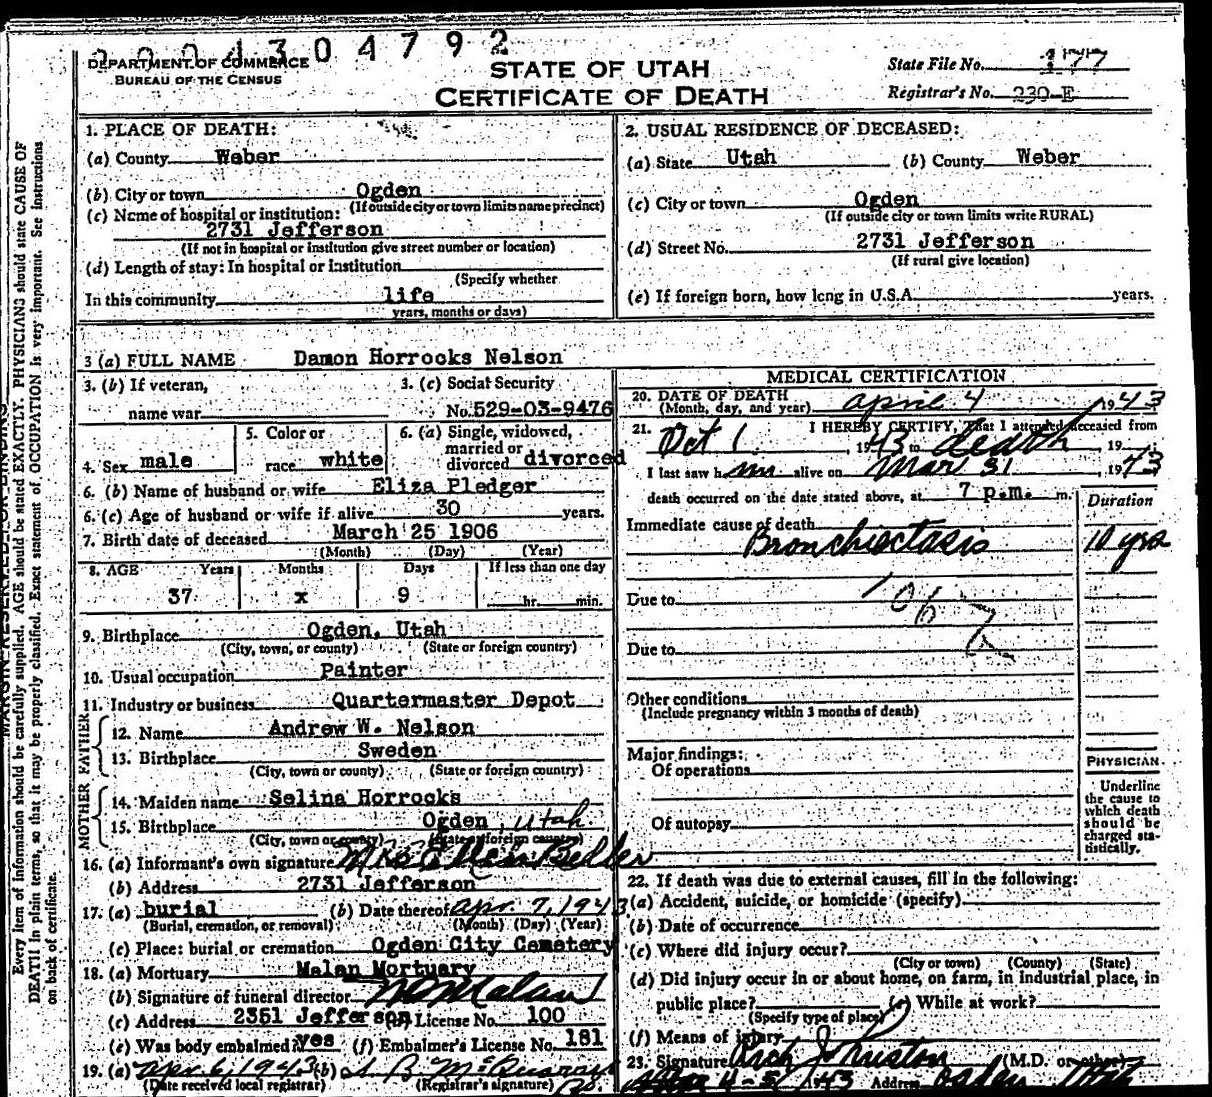 2004304792
DEPARTMENT OF COMMERCE
BUREAU OF THE CENSUS
STATE OF UTAH
CERTIFICATE OF DEATH
State File No. 177
Registrar's No. 230-E
MARGIN RESERVED FOR BINDING
Every item of information should be carefully supplied. AGE should be stated EXACTLY. PHYSICIANS should state CAUSE OF
DEATH in plain terms, so that it may be properly classified. Exact statement of OCCUPATION is very important. See instructions
on back of certificate.
1. PLACE OF DEATH:
(a) County Weber
(b) City or town Ogden
(If outside city or town limits name precinct)
(c) Name of hospital or institution:
2731 Jefferson
(If not in hospital or institution give street number or location)
(d) Length of stay: In hospital or institution
(Specify whether
In this community life
years, months or days)
2. USUAL RESIDENCE OF DECEASED:
(a) State Utah (b) County Weber
(c) City or town Ogden
(If outside city or town limits write RURAL)
(d) Street No. 2731 Jefferson
(If rural give location)
(e) If foreign born, how long in U.S.A. years.
3 (a) FULL NAME Damon Horrocks Nelson
3. (b) If veteran,
name war
3. (c) Social Security
No. 529-03-9476
4. Sex male
5. Color or
race white
6. (a) Single, widowed,
married or
divorced divorced
6. (b) Name of husband or wife Eliza Pledger
6. (c) Age of husband or wife if alive 30 years.
7. Birth date of deceased March 25 1906
(Month) (Day) (Year)
8. AGE Years Months Days If less than one day
37 x 9 hr. min.
9. Birthplace Ogden, Utah
(City, town, or county) (State or foreign country)
10. Usual occupation Painter
11. Industry or business Quartermaster Depot
FATHER
12. Name Andrew W. Nelson
13. Birthplace Sweden
(City, town or county) (State or foreign country)
MOTHER
14. Maiden name Selina Horrocks
15. Birthplace Ogden, Utah.
(City, town or county) (State or foreign country)
16. (a) Informant's own signature Mrs
(b) Address 2731 Jefferson
17. (a) burial (b) Date thereof Apr. 7, 1943
(Burial, cremation, or removal) (Month) (Day) (Year)
(c) Place: burial or cremation Ogden City Cemetery
18. (a) Mortuary Malan Mortuary
(b) Signature of funeral director Malan
(c) Address 2351 Jefferson (d) License No. 100
(e) Was body embalmed? yes (f) Embalmer's License No. 181
19. (a) Apr 6, 1943 (b)
(Date received local registrar) (Registrar's signature)
MEDICAL CERTIFICATION
20. DATE OF DEATH
(Month, day, and year) April 4 1943
21. I HEREBY CERTIFY, That I attended deceased from
Oct 1, 1943 to death, 19
I last saw him alive on Mar 31, 1943
death occurred on the date stated above, at 7 p.m. m.
Duration
Immediate cause of death
Bronchiectasis 10 yrs
Due to
Due to
Other conditions
(Include pregnancy within 3 months of death)
Major findings:
Of operations
Of autopsy
PHYSICIAN
Underline
the cause to
which death
should be
charged sta-
tistically.
22. If death was due to external causes, fill in the following:
(a) Accident, suicide, or homicide (specify)
(b) Date of occurrence
(c) Where did injury occur?
(City or town) (County) (State)
(d) Did injury occur in or about home, on farm, in industrial place, in
public place? (e) While at work?
(Specify type of place)
(f) Means of injury
23. Signature (M.D. or other)
4-5/1943 Address Ogden Utah